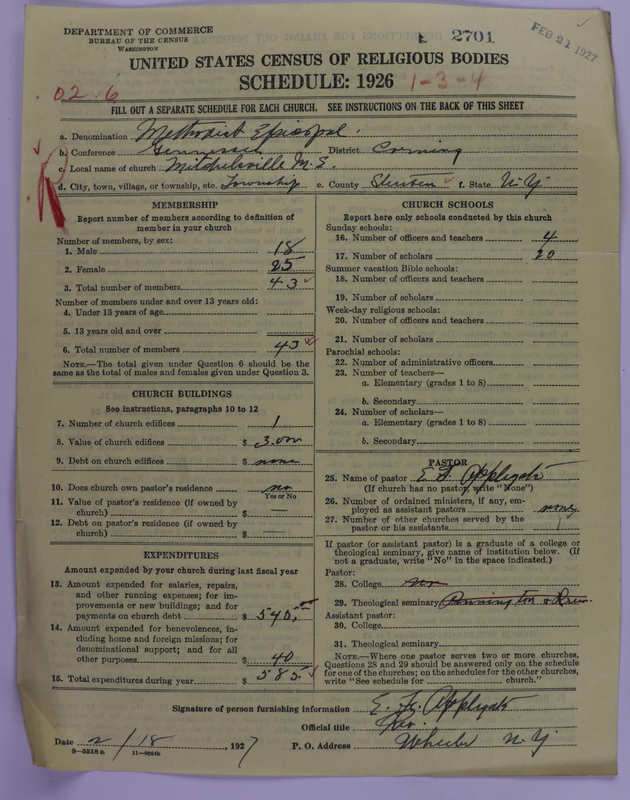 DEPARTMENT OF COMMERCE
BUREAU OF THE CENSUS
WASHINGTON
2701
FEB 21 1927
UNITED STATES CENSUS OF RELIGIOUS BODIES
SCHEDULE: 1926
1-3-4
02.6
FILL OUT A SEPARATE SCHEDULE FOR EACH CHURCH. SEE INSTRUCTIONS ON THE BACK OF THIS SHEET
a. Denomination Methodist Episcopal.
b. Conference Genesee District Corning
c. Local name of church Mitchelsville M.E.
d. City, town, village, or township, etc. Township e. County Steuben f. State N.Y.
MEMBERSHIP
Report number of members according to definition of
member in your church
Number of members, by sex:
1. Male 18
2. Female 25
3. Total number of members 43
Number of members under and over 13 years old:
4. Under 13 years of age
5. 13 years old and over
6. Total number of members 43
NOTE.—The total given under Question 6 should be the
same as the total of males and females given under Question 3.
CHURCH BUILDINGS
See instructions, paragraphs 10 to 12
7. Number of church edifices 1
8. Value of church edifices $ 3.000
9. Debt on church edifices $ none
10. Does church own pastor's residence no
Yes or No
11. Value of pastor's residence (if owned by
church) $ —
12. Debt on pastor's residence (if owned by
church) $ —
EXPENDITURES
Amount expended by your church during last fiscal year
13. Amount expended for salaries, repairs,
and other running expenses; for im-
provements or new buildings; and for
payments on church debt $ 540.00
14. Amount expended for benevolences, in-
cluding home and foreign missions; for
denominational support; and for all
other purposes $ 40
15. Total expenditures during year $ 585
CHURCH SCHOOLS
Report here only schools conducted by this church
Sunday schools:
16. Number of officers and teachers 4
17. Number of scholars 20
Summer vacation Bible schools:
18. Number of officers and teachers
19. Number of scholars
Week-day religious schools:
20. Number of officers and teachers
21. Number of scholars
Parochial schools:
22. Number of administrative officers
23. Number of teachers—
a. Elementary (grades 1 to 8)
b. Secondary
24. Number of scholars—
a. Elementary (grades 1 to 8)
b. Secondary
PASTOR
25. Name of pastor E. F. Applegate
(If church has no pastor, write "None")
26. Number of ordained ministers, if any, em-
ployed as assistant pastors none
27. Number of other churches served by the
pastor or his assistants
If pastor (or assistant pastor) is a graduate of a college or
theological seminary, give name of institution below. (If
not a graduate, write "No" in the space indicated.)
Pastor:
28. College no
29. Theological seminary Pennington &
Assistant pastor:
30. College
31. Theological seminary
NOTE.—Where one pastor serves two or more churches,
Questions 28 and 29 should be answered only on the schedule
for one of the churches; on the schedules for the other churches,
write "See schedule for church."
Signature of person furnishing information E. F. Applegate
Official title
Date 2/18, 1927 P. O. Address Wheeler N.Y.